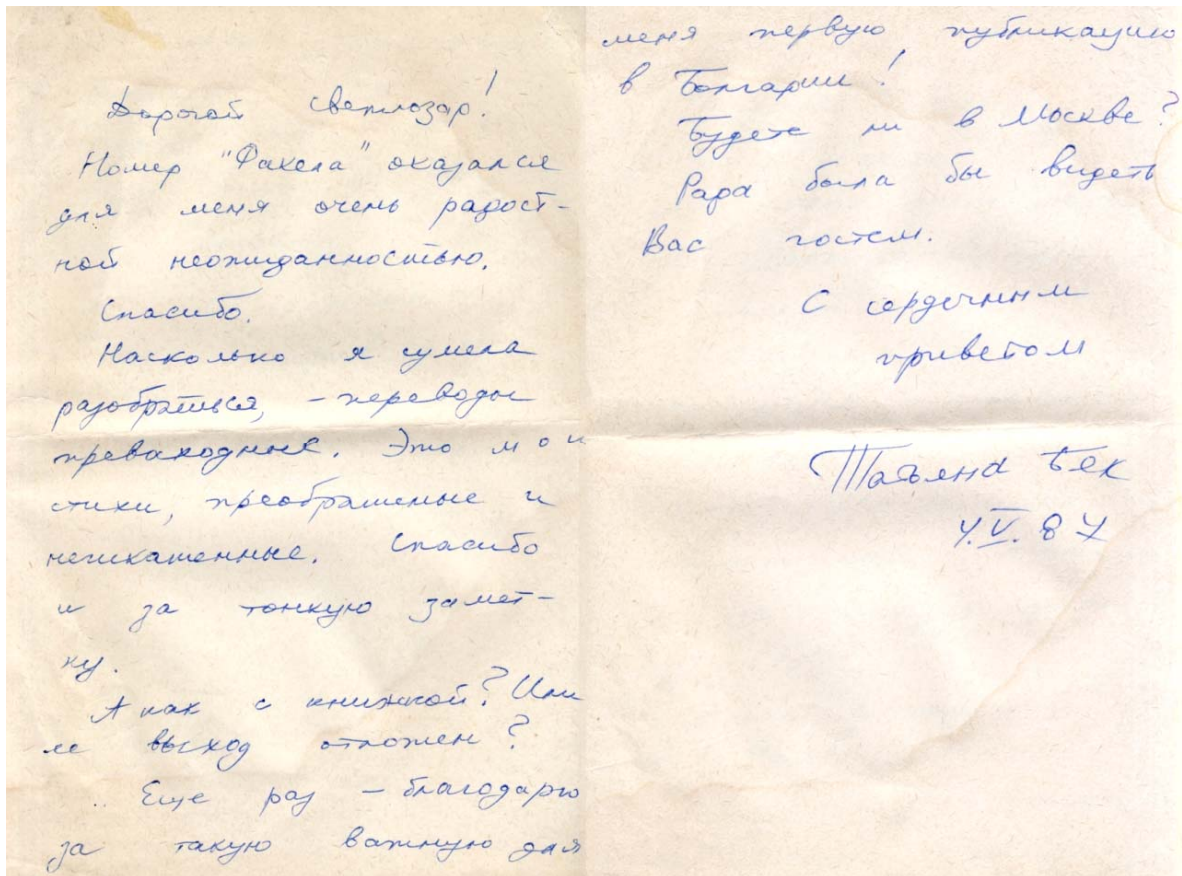 Дорогой Светлозар!
Номер "Факела" оказался
для меня очень радост-
ной неожиданностью.
Спасибо.
Насколько я сумела
разобраться, – переводы
превосходные. Это мои
стихи, преображенные и
неискаженные. Спасибо
и за тонкую замет-
ку.
А как с книжкой? Или
ее выход отложен?
Еще раз – благодарю
за такую важную для
меня первую публикацию
в Болгарии!
Будете ли в Москве?
Рада была бы видеть
Вас гостем.
С сердечным
приветом
Татьяна Бек
4.V.87